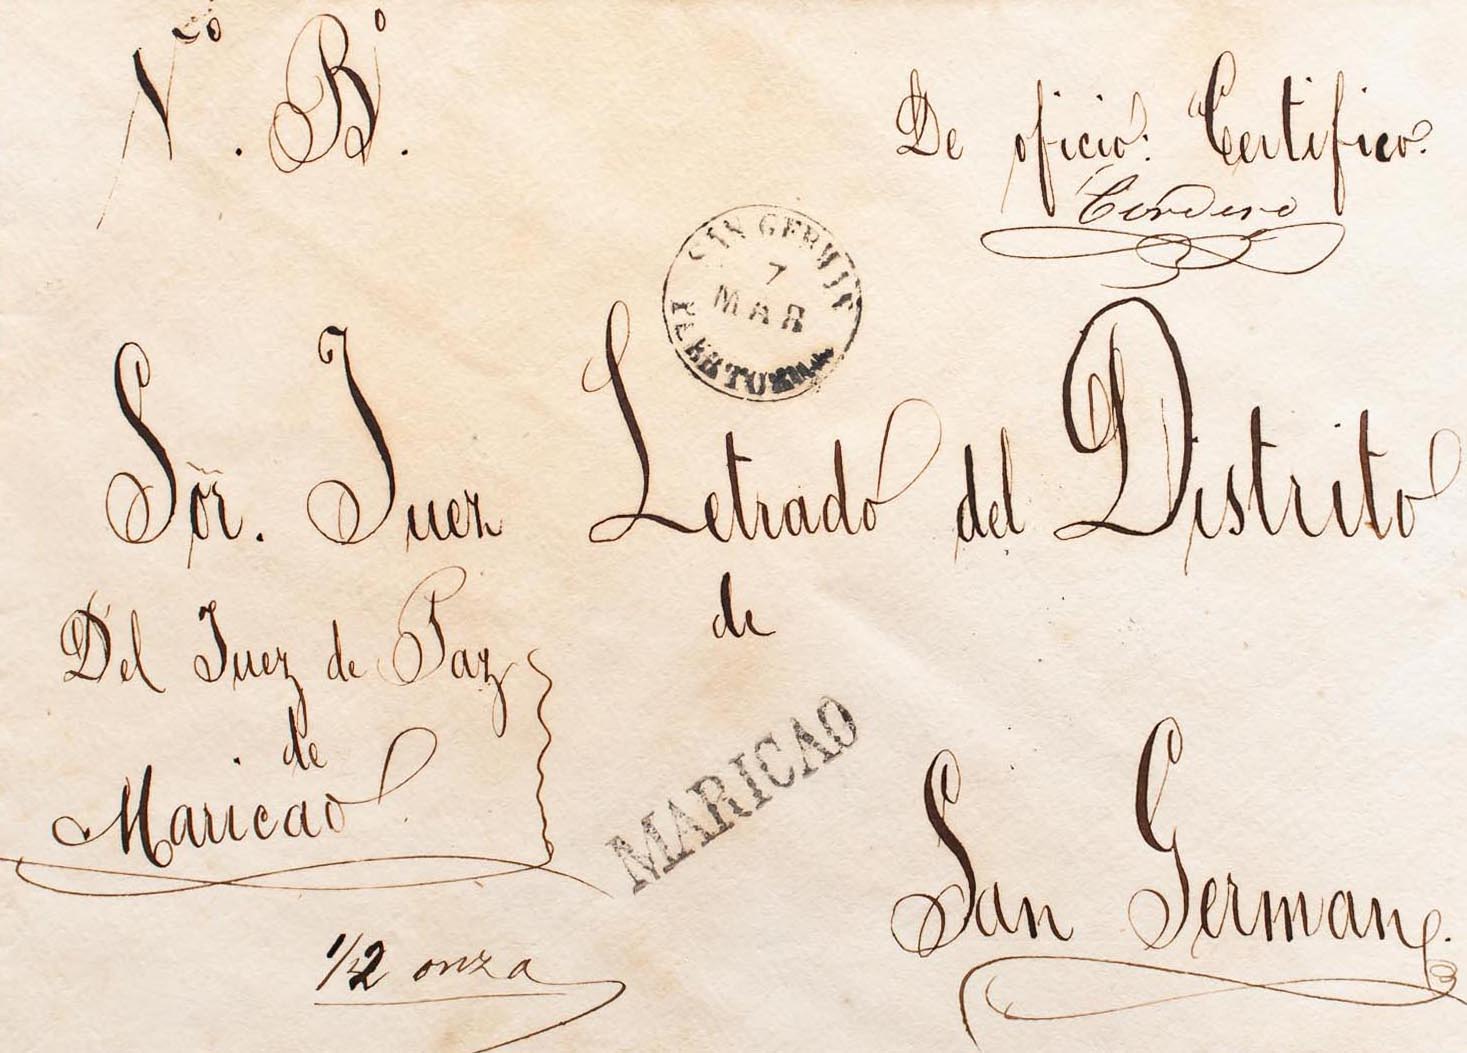 V.º B.º
De oficio: Certifico.
Cordero
SAN GERMAN
7
MAR
PUERTO
Sõr. Juez Letrado del Distrito
de
San German.
Del Juez de Paz
de
Maricao
MARICAO
1/2 onza